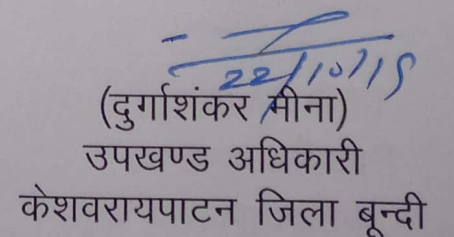 22/10/19
(दुर्गाशंकर मीना)
उपखण्ड अधिकारी
केशवरायपाटन जिला बून्दी